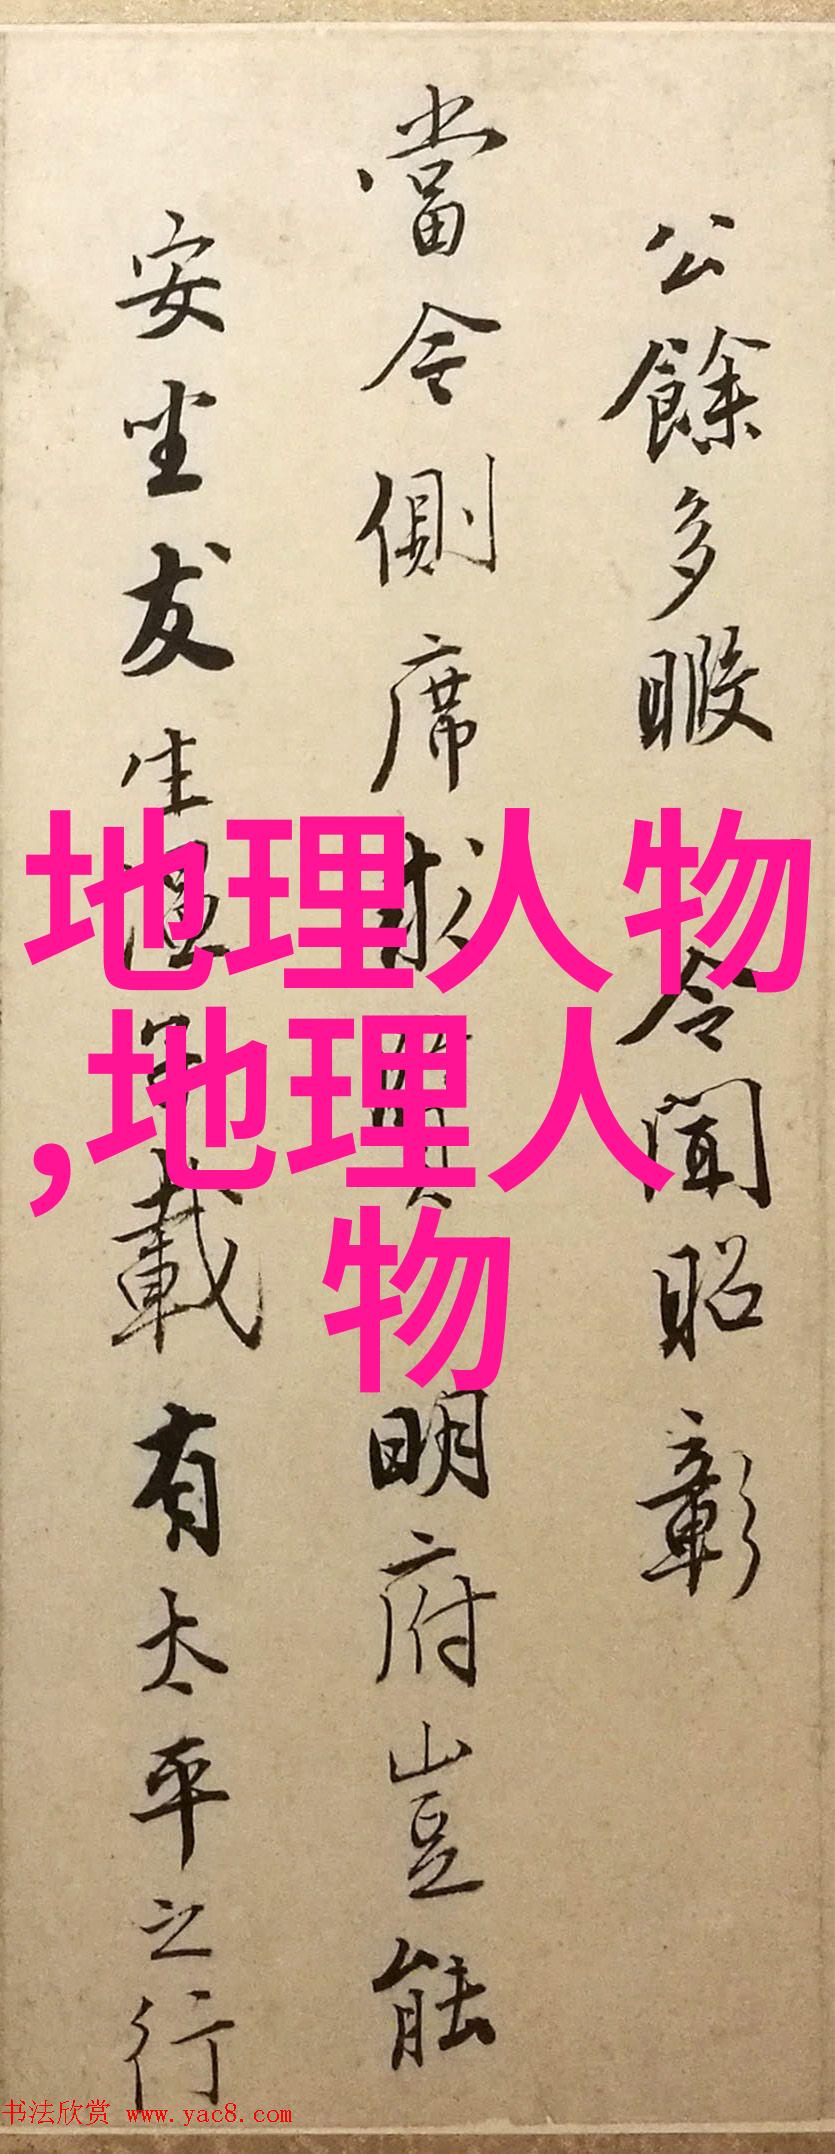 公餘多暇 令聞昭彰
當今側席求賢明府豈能
安坐友生載有太平之行
地理人物
,地理人
物
书法欣赏 www.yac8.com